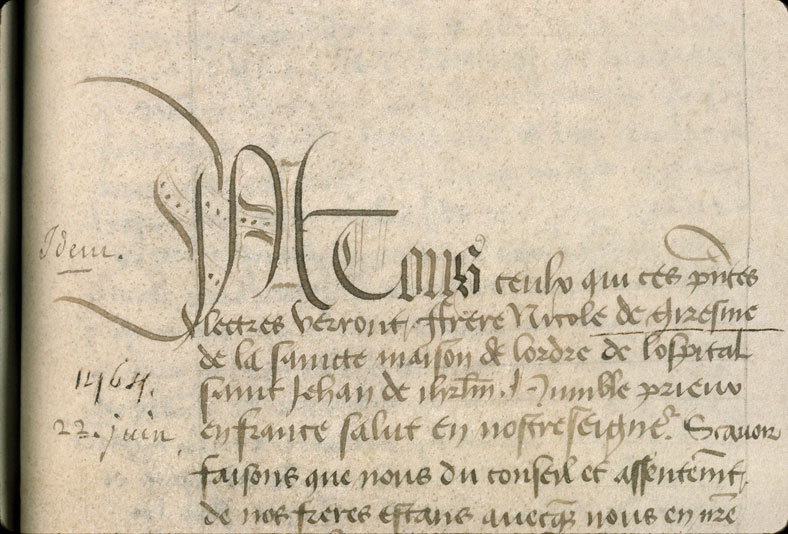 A Tous ceulx qui ces pntes
lettres verront, ffrere Nicole de Giresme
de la saincte maison de lordre de lospital
saint Jehan de ihrlm. humble prieur
en france salut En nostreseigne.r Scauoir
faisons que nous du conseil et assentemt,
de nos freres estans auecq nous en nre
Idem.
1464.
22. juin